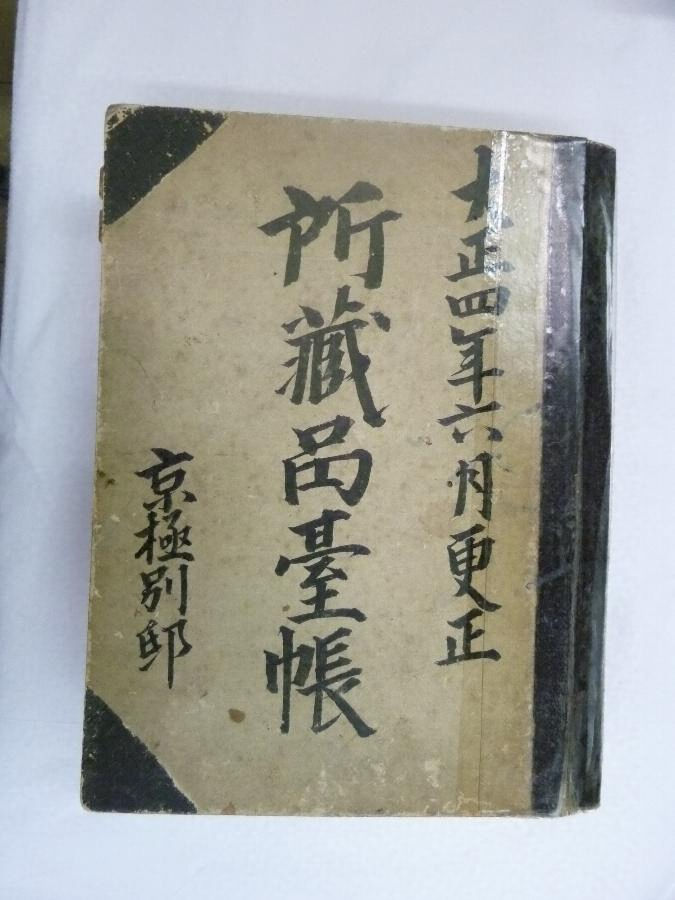 大正四年六月更正
所藏品臺帳
京極別邸